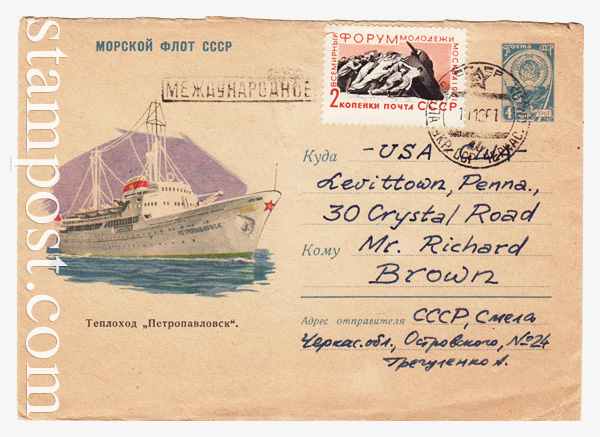 МОРСКОЙ ФЛОТ СССР
МЕЖДУНАРОДНОЕ
ВСЕМИРНЫЙ
ФОРУМ
МОЛОДЕЖИ
МОСКВА
2 КОПЕЙКИ ПОЧТА СССР
Почта
СССР
4
1961
ПЕТРОПАВЛОВСК
Теплоход „Петропавловск“.
Куда
-USA-
Levittown, Penna.,
30 Crystal Road
Кому Mr. Richard
Brown
Адрес отправителя СССР, Смела
Черкас. обл., Островского, №24
Грегуленко А.
stampost.com